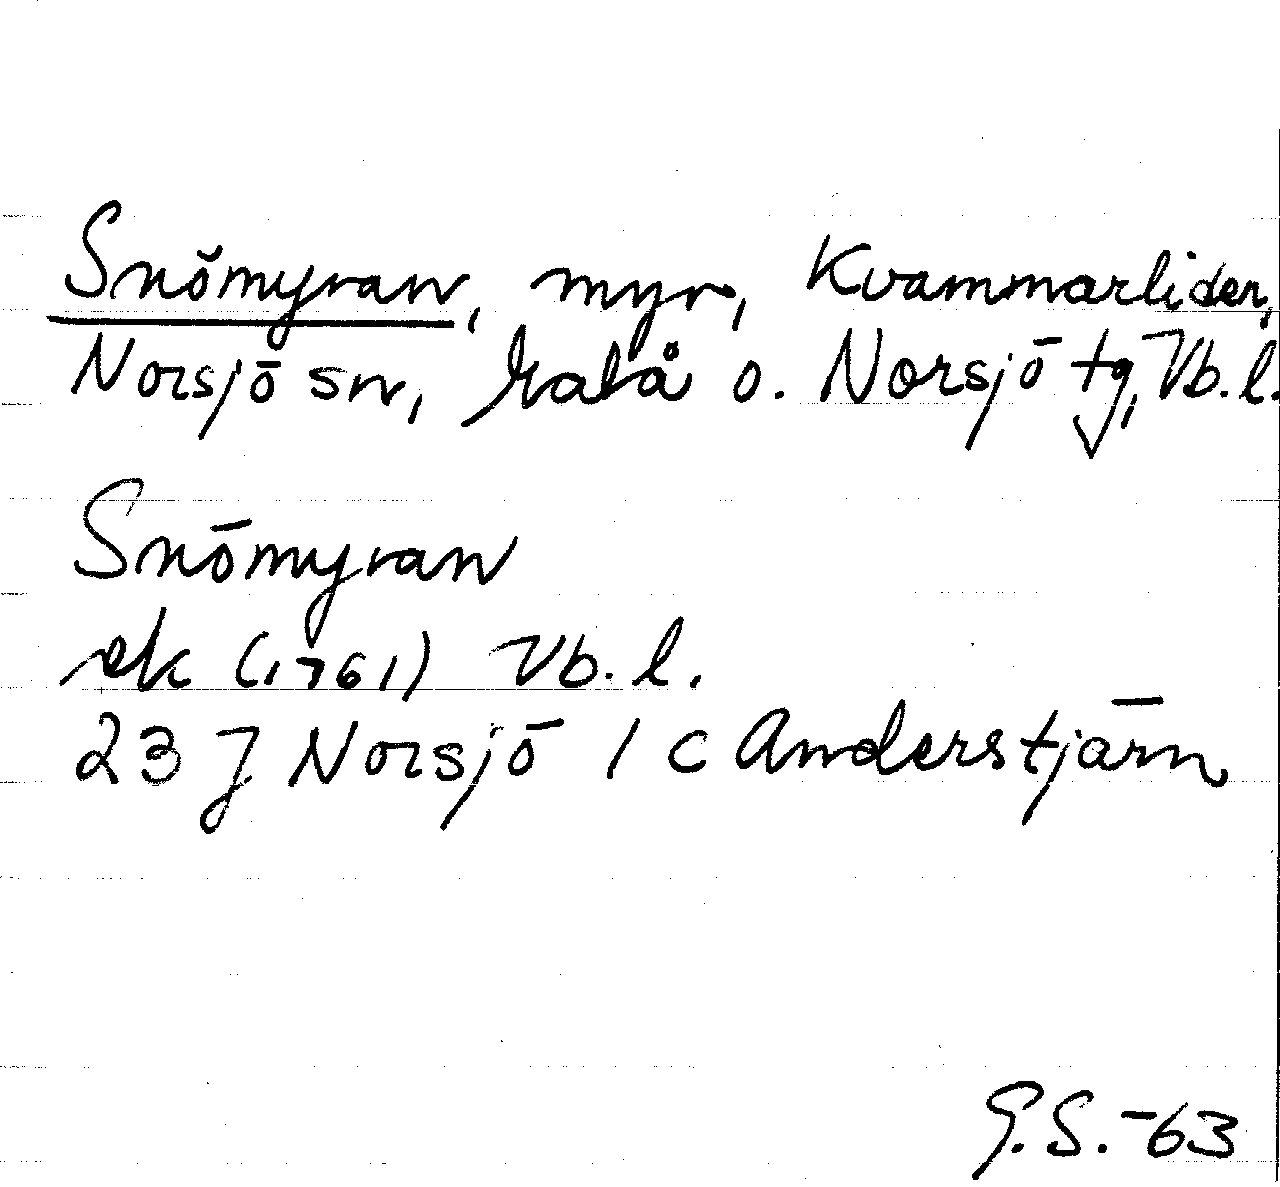 Snömyran, myr, Kvammarliden,
Norsjö sn, Malå o. Norsjö tg, Vb. l.
Snömyran
ek (1761) Vb. l.
23 J Norsjö 1 c Anderstjärn
G.S.-63